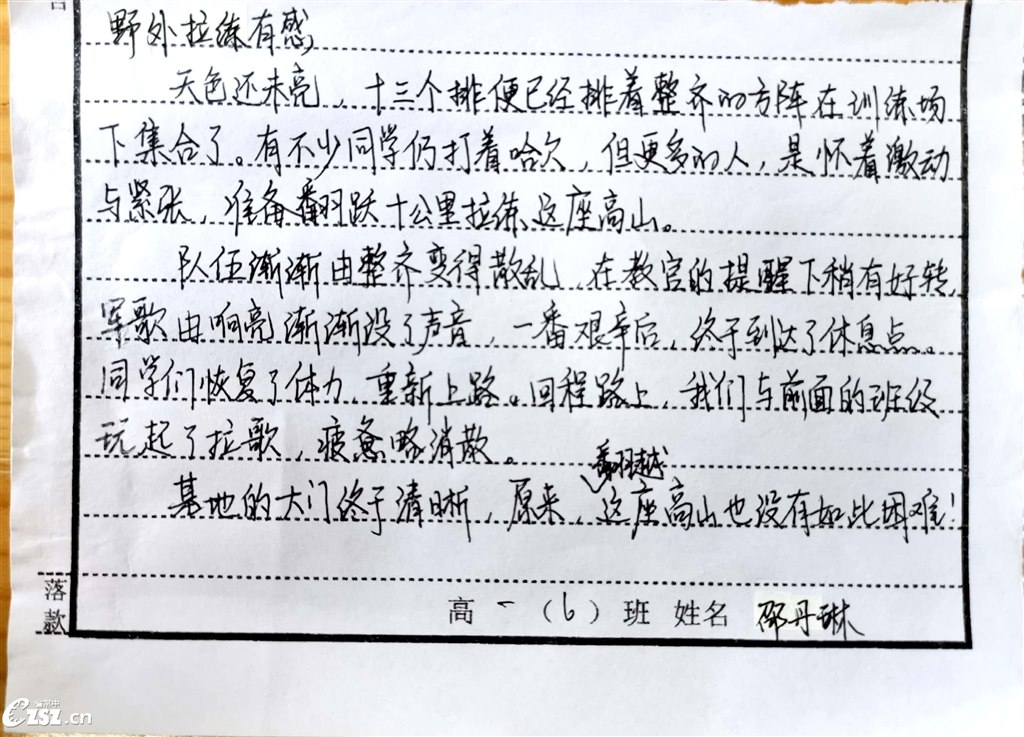 野外拉练有感
天色还未亮，十三个排便已经排着整齐的方阵在训练场
下集合了。有不少同学仍打着哈欠，但更多的人，是怀着激动
与紧张，准备翻跃十公里拉练这座高山。
队伍渐渐由整齐变得散乱，在教官的提醒下稍有好转，
军歌由响亮渐渐没了声音，一番艰辛后，终于到达了休息点。
同学们恢复了体力，重新上路。回程路上，我们与前面的班级
玩起了拉歌，疲惫略消散。
翻越
基地的大门终于清晰，原来，这座高山也没有如此困难！
落款
高一（6）班 姓名 邵丹琳
ezsz.cn